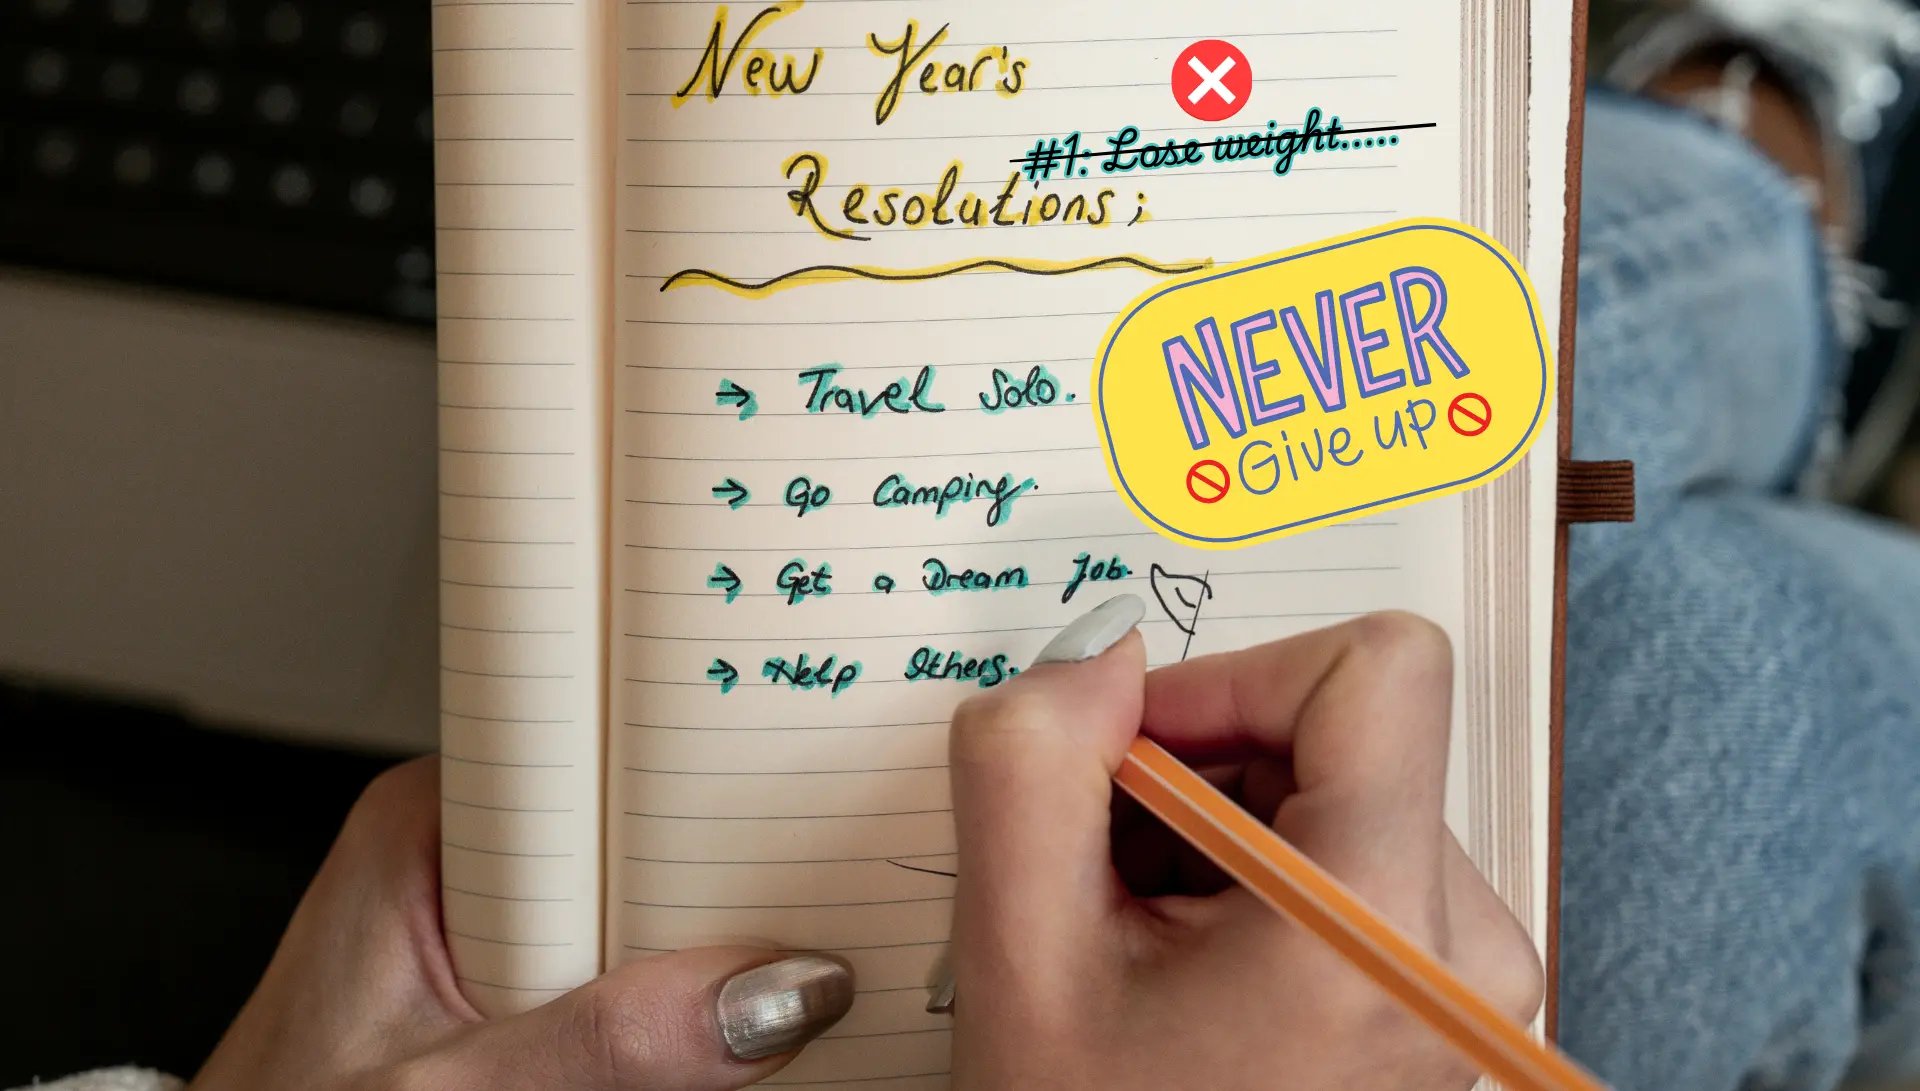 New Year's
#1: Lose weight.....
Resolutions;
NEVER
Give up
→ Travel Solo.
→ Go Camping.
→ Get a Dream Job.
→ Help Others.